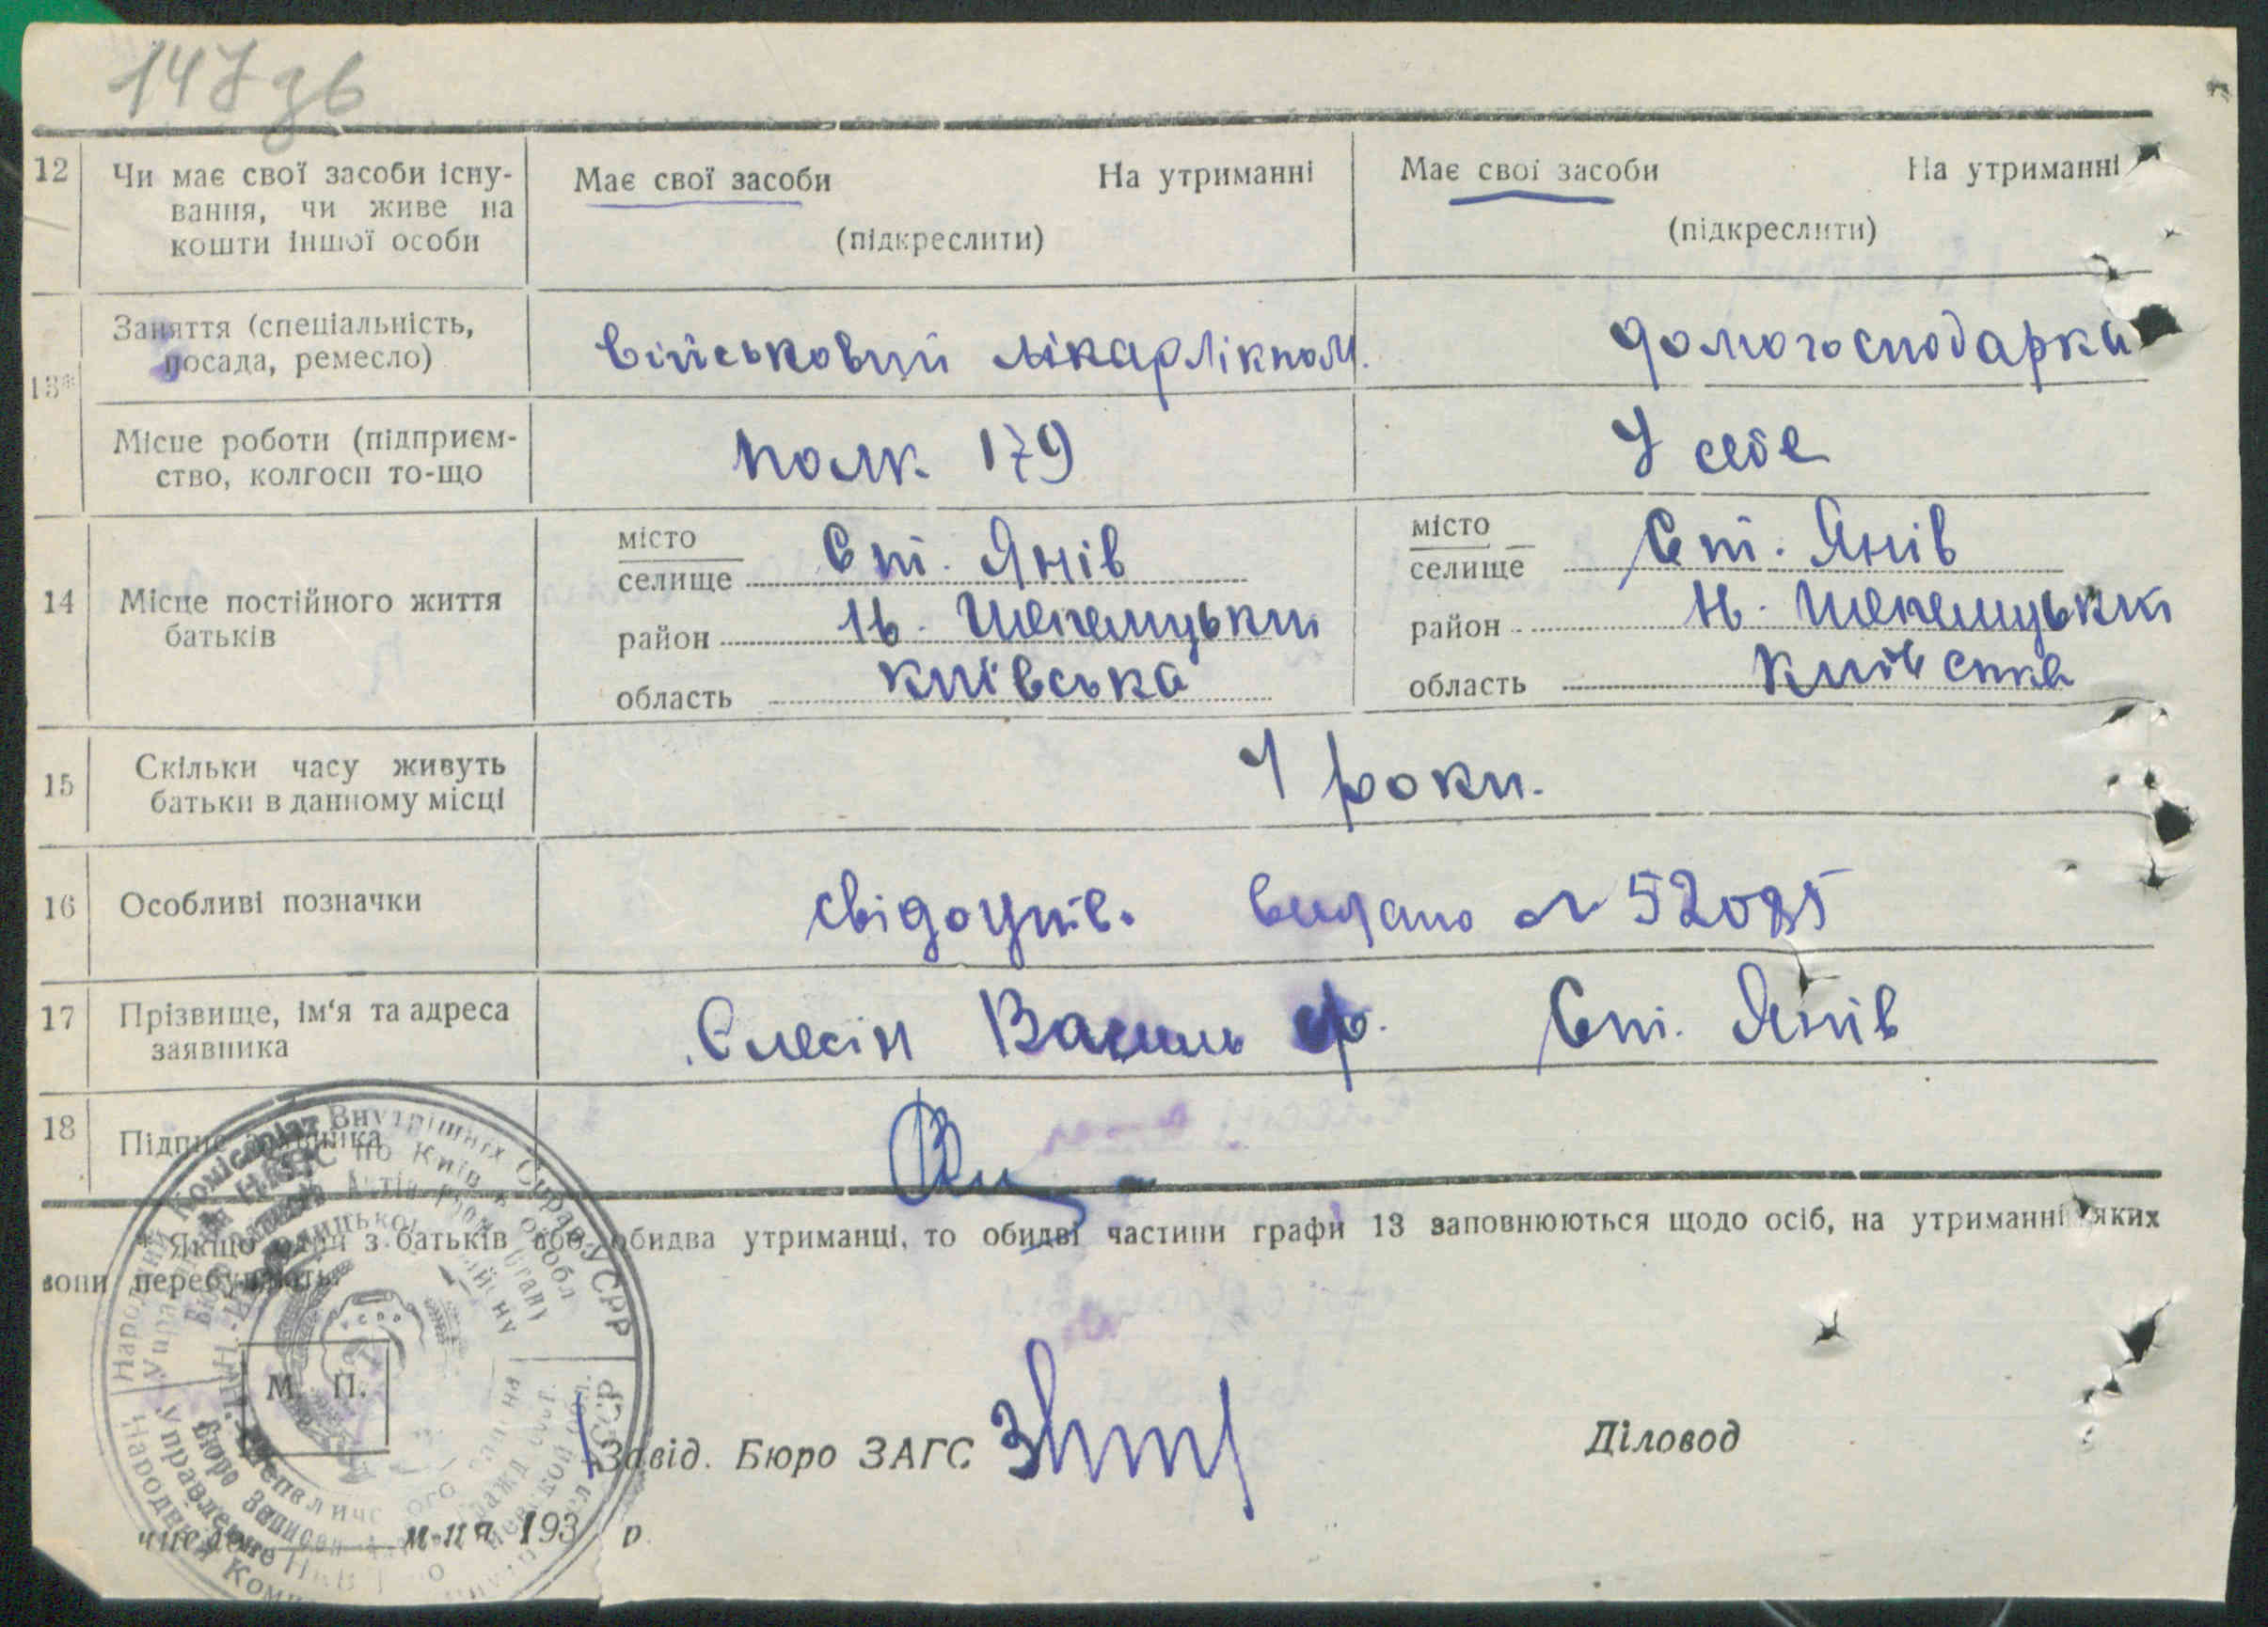 147 зв
12 Чи має свої засоби існу- Має свої засоби На утриманні Має свої засоби На утриманні
вання, чи живе на
кошти іншої особи (підкреслити) (підкреслити)
13* Заняття (спеціальність, військовий лікар лікпом. домогосподарка
посада, ремесло)
Місце роботи (підприєм- полк 179 У себе
ство, колгосп то-що
14 Місце постійного життя батьків
місто Ст. Янів місто Ст. Янів
селище селище
район Н. Шепелицьки район Н. Шепелицьки
область київська область київська
15 Скільки часу живуть роки.
батьки в данному місці
16 Особливі позначки свідоцтв. видано № 52085
17 Прізвище, ім‘я та адреса Єлесін Василь Ф. Ст. Янів
заявника
18 Підпис заявника
* Якщо один з батьків або обидва утриманці, то обидві частини графи 13 заповнюються щодо осіб, на утриманні яких
вони перебувають.
Народний Комісаріат Внутрішніх Справ УСРР
М. П.
Завід. Бюро ЗАГС Діловод
числа м-ця 193 р.